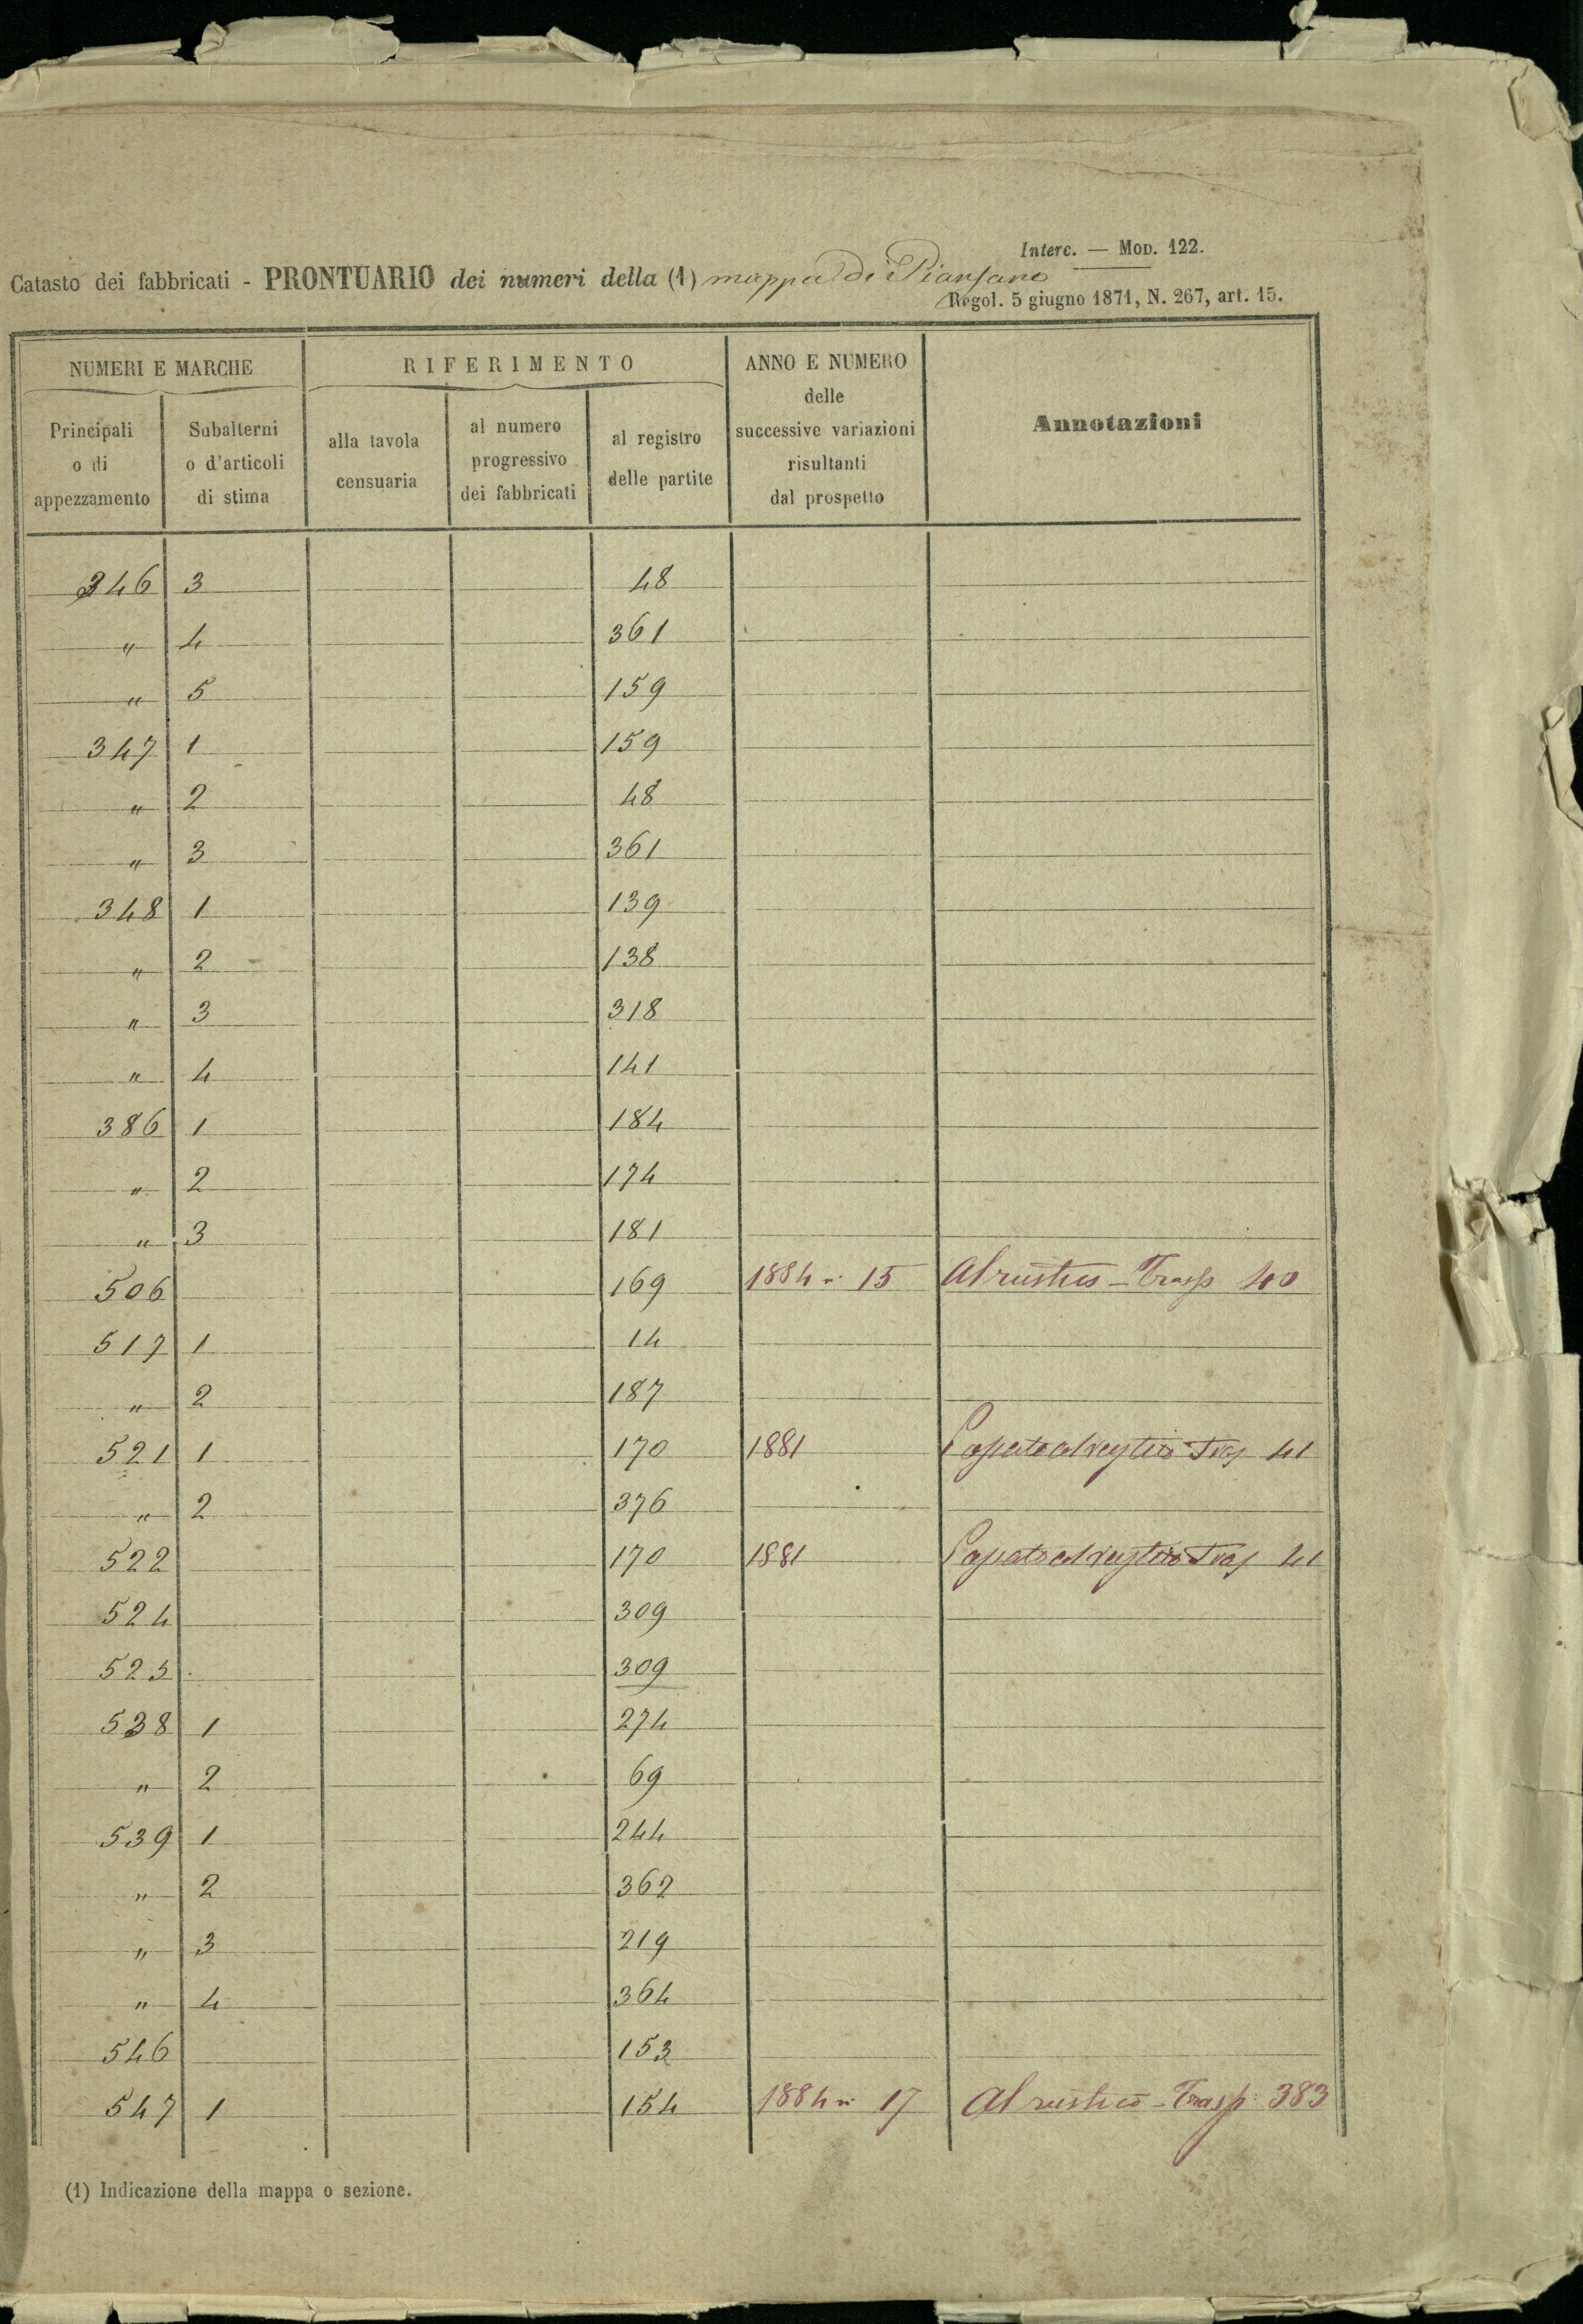 Interc. — Mod. 122.
Catasto dei fabbricati - PRONTUARIO dei numeri della (1) mappa di Piansano
Regol. 5 giugno 1871, N. 267, art. 15.
NUMERI E MARCHE
RIFERIMENTO
ANNO E NUMERO
delle
successive variazioni
risultanti
dal prospetto
Annotazioni
Principali
o di
appezzamento
Subalterni
o d'articoli
di stima
alla tavola
censuaria
al numero
progressivo
dei fabbricati
al registro
delle partite
346 3 48
" 4 361
" 5 159
347 1 159
" 2 48
" 3 361
348 1 139
" 2 138
" 3 318
" 4 141
386 1 184
" 2 174
" 3 181
506 169 1884 n. 15 Al rustico - Trasp 40
517 1 14
" 2 187
521 1 170 1881 41
" 2 376
522 170 1881 41
524 309
525 309
538 1 274
" 2 69
539 1 244
" 2 362
" 3 219
" 4 364
546 153
547 1 154 1884 n. 17 Al rustico - Trasp. 383
(1) Indicazione della mappa o sezione.